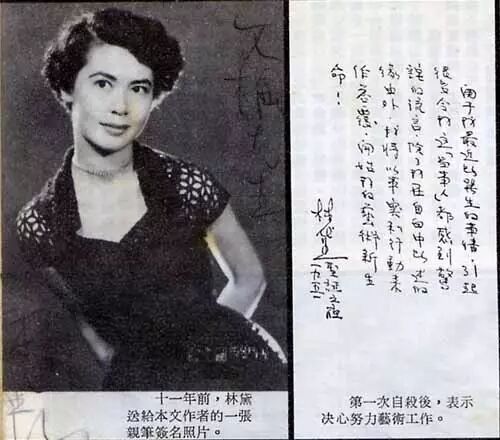 由于我最近所發生的事情，引起
很多令我這“當事人”都感到驚
訝的流言，除了我在自白中所述的
緣由外，我將以事實和行動來
作答覆，開始我的藝術新生
命！
林黛
聖誕之夜
十一年前，林黛
送給本文作者的一張
親筆簽名照片。
第一次自殺後，表示
决心努力藝術工作。